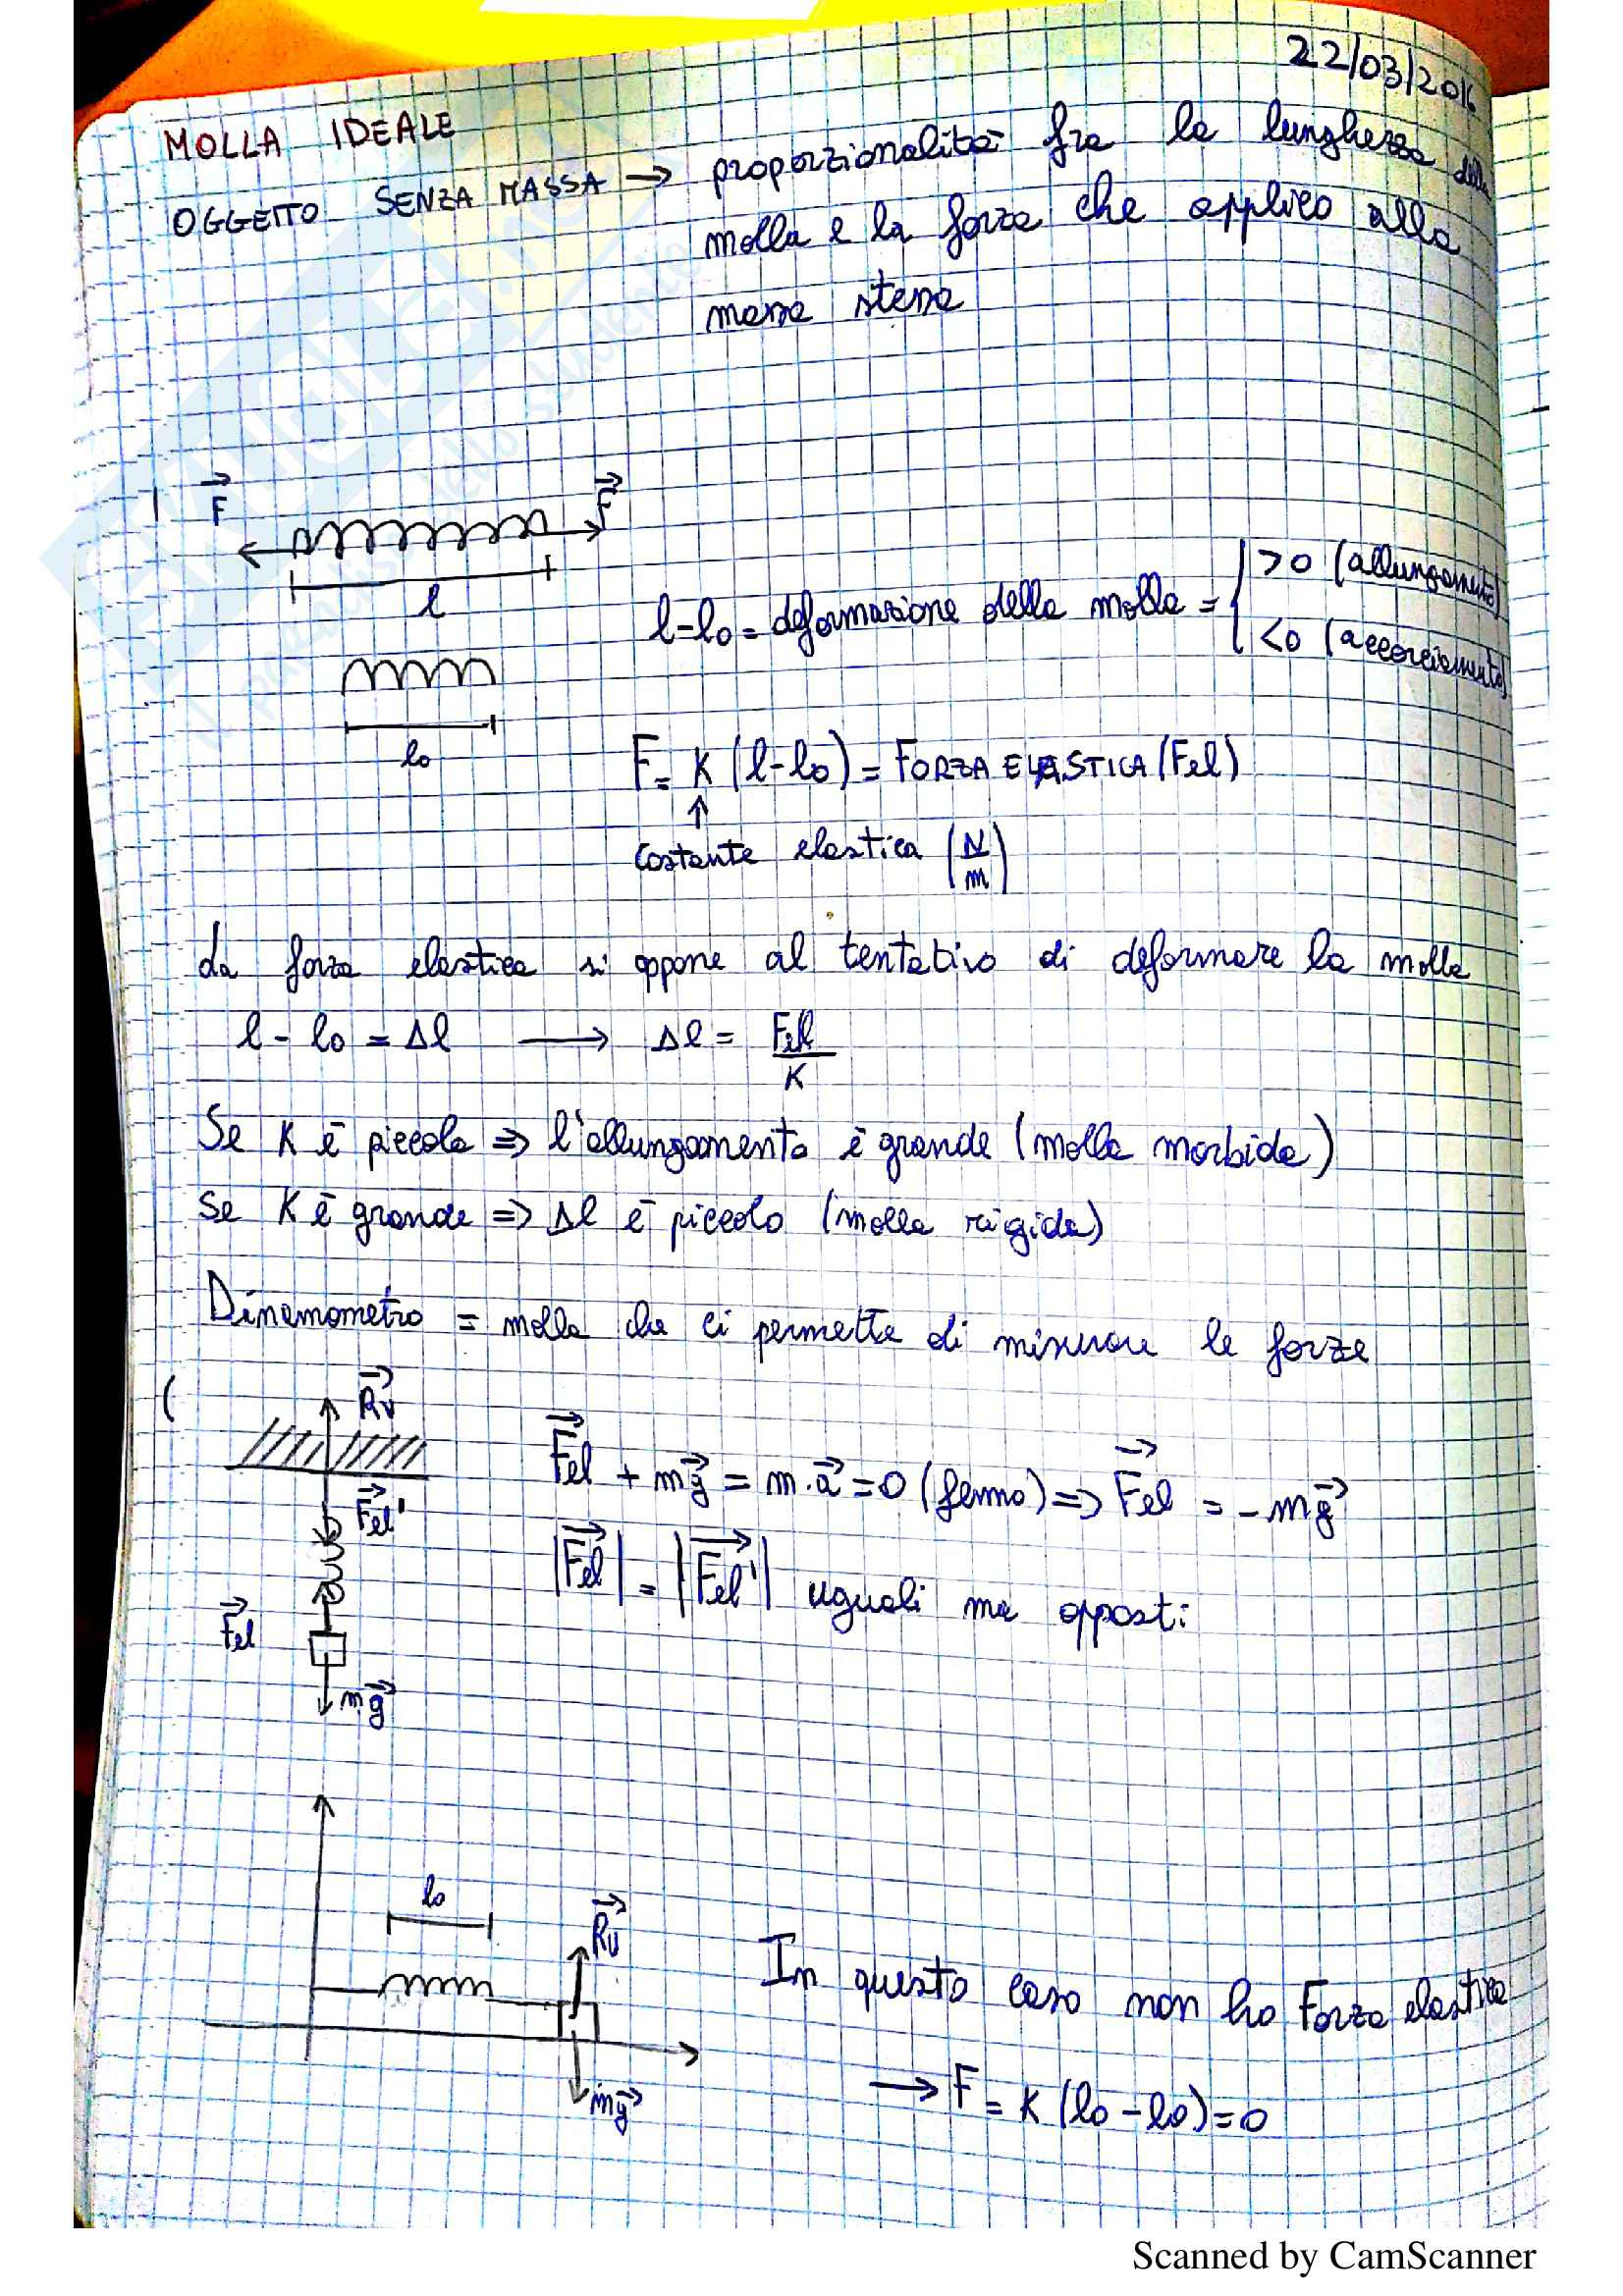 22/03/2016
MOLLA IDEALE
OGGETTO SENZA MASSA → proporzionalità fra la lunghezza della
molla e la forza che applico alla
massa stessa
F⃗ F⃗
l
l-l₀ = deformazione della molla = { >0 (allungamento)
<0 (accorciamento)
l₀
F = K (l-l₀) = FORZA ELASTICA (Fel)
↑
costante elastica (N/m)
La forza elastica si oppone al tentativo di deformare la molla
l - l₀ = Δl → Δl = Fel/K
Se K è piccola => l'allungamento è grande (molla morbida)
Se K è grande => Δl è piccolo (molla rigida)
Dinamometro = molla che ci permette di misurare le forze
R⃗v
F⃗el + mg⃗ = m·a⃗ = 0 (fermo) => F⃗el = -mg⃗
F⃗el'
|F⃗el| = |F⃗el'| uguali ma opposti
F⃗el
mg⃗
l₀
R⃗v
In questo caso non ho Forza elastica
→ F = K (l₀-l₀) = 0
mg⃗
Scanned by CamScanner